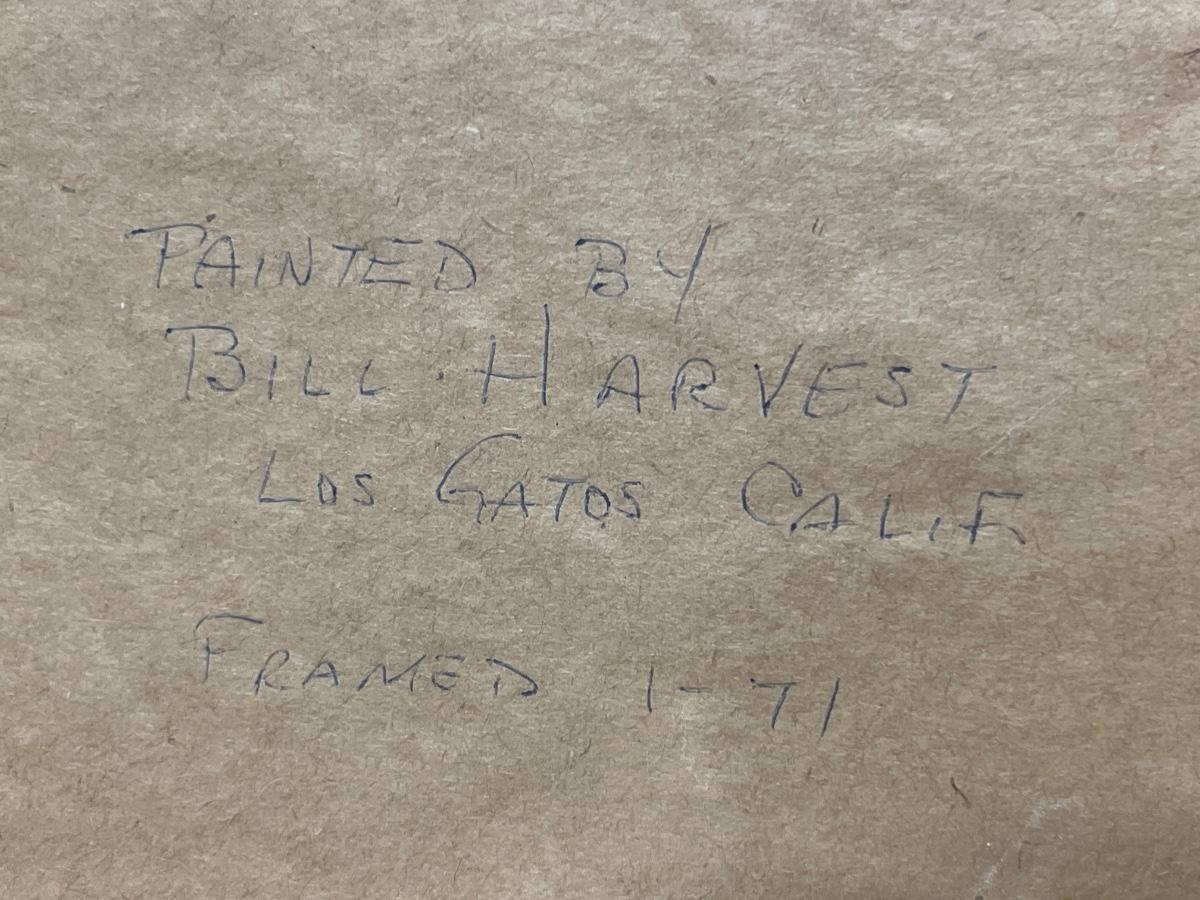 PAINTED BY
BILL HARVEST
LOS GATOS CALIF.
FRAMED 1-71